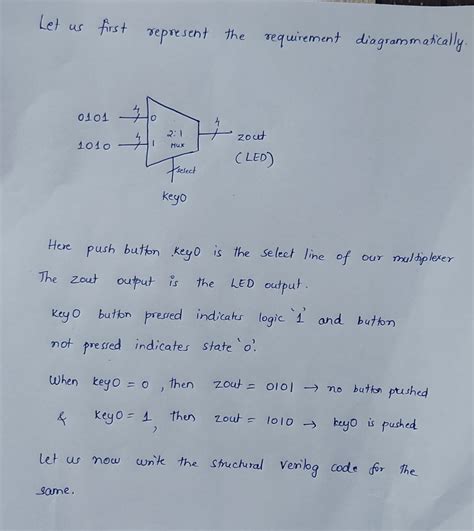 Let us first represent the requirement diagrammatically.
4
0101
0
4
2:1
zout
4
1010
1
Mux
(LED)
select
key0
Here push button key0 is the select line of our multiplexer
The zout output is the LED output.
key0 button pressed indicates logic '1' and button
not pressed indicates state '0'.
When key0 = 0, then zout = 0101 → no button pushed
& key0 = 1, then zout = 1010 → key0 is pushed
Let us now write the structural verilog code for the
same.